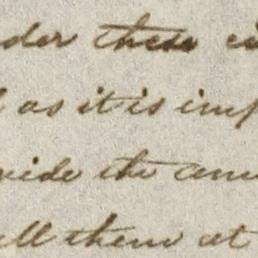 der these ci
as it is imp
vide the amu
ll them at